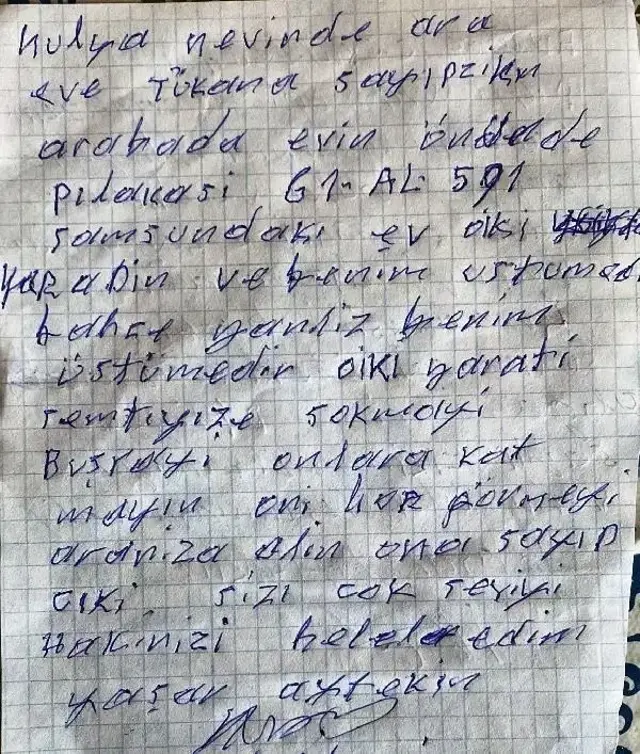 hulya nevinde ara
eve Tükana sayıpzikın
arabada evin önde
pılakasi 61-AL 591
samsundakı ev oiki
yarabin ve benim ustumad
bahçe yanlız benim
üstümedir oiki yarati
semtiyize sokmayi
Buşrayi onlara kat
mayin oni hor görmeyi
araniza alin ona sayıp
ciki sizi cok seviyi
Hakinizi helal edim
yaşar aytekin